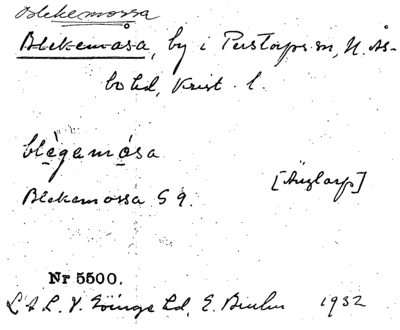 Blekemossa
Blekemåsa, by i Perstorps sn, N. Ås-
bo hd, Krist. l.
blègamósa
[Äuglarp]
Blekemossa Gg.
Nr 5500.
L & L. V. Göinge hd, E. 1932